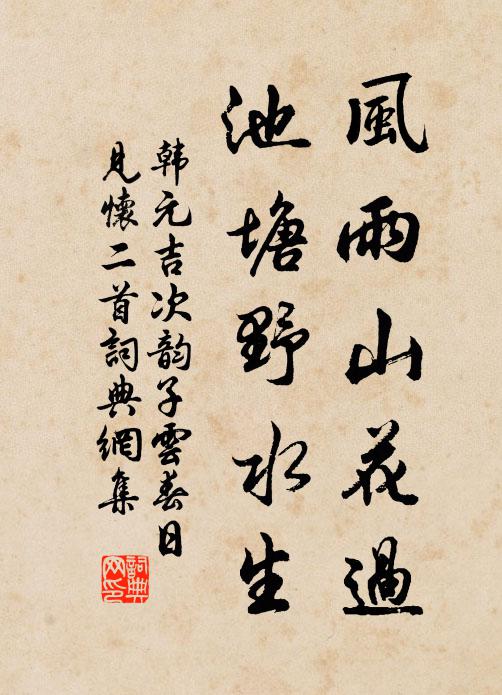 風雨山花過
池塘野水生
韩元吉次韵子雲春日
見懷二首詞典網集
詞典
网印